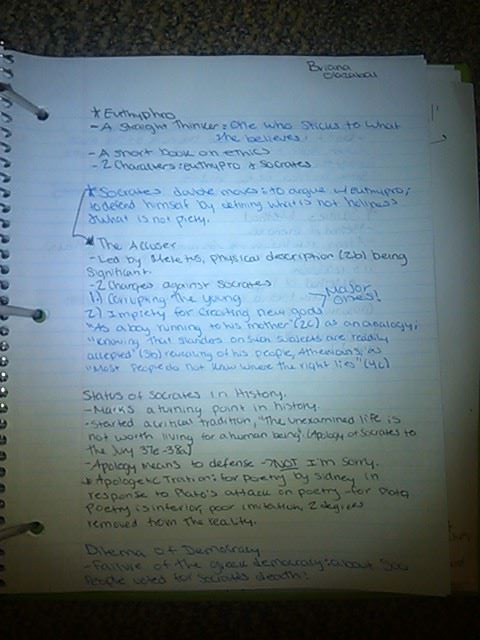 Briana
* Euthyphro
- A Straight Thinker: One who sticks to what
she believes.
- A short book on ethics
- 2 Characters: Euthypro & Socrates
* Socrates double moves: to argue w/ euthypro;
to defend himself by defining what is not holiness
& what is not piety.
* The Accuser
- Led by Meletis, physical description (2b) being
significant.
- 2 Charges against Socrates
1.) Corrupting the young
→ Major ones!
2) Impiety for creating new gods
"As a boy running to his mother" (2c) as an analogy;
"Knowing that slanders on such subjects are readily
accepted" (3b) revealing of his people, Athenians; as
"Most People do not know where the right lies" (4a)
Status of Socrates in History.
- Marks a turning point in history.
- Started a critical tradition, "The unexamined life is
not worth living for a human being". (Apology of Socrates to
the Jury 37e-38a)
- Apology means to defense → NOT I'm sorry.
* Apologetic Tration: for poetry by sidney in
response to Plato's attack on poetry - for Plato,
Poetry is inferior, poor imitation, 2 degrees
removed from the reality.
Dilema of Democracy
- Failure of the greek democracy: about 500
People voted for Socrates death: